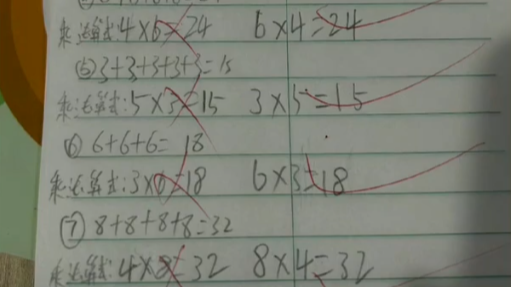 乘法算式:4×6=24 6×4=24
(5)3+3+3+3+3=15
乘法算式:5×3=15 3×5=15
⑥ 6+6+6=18
乘法算式:3×6=18 6×3=18
⑦ 8+8+8+8=32
乘法算式:4×8=32 8×4=32